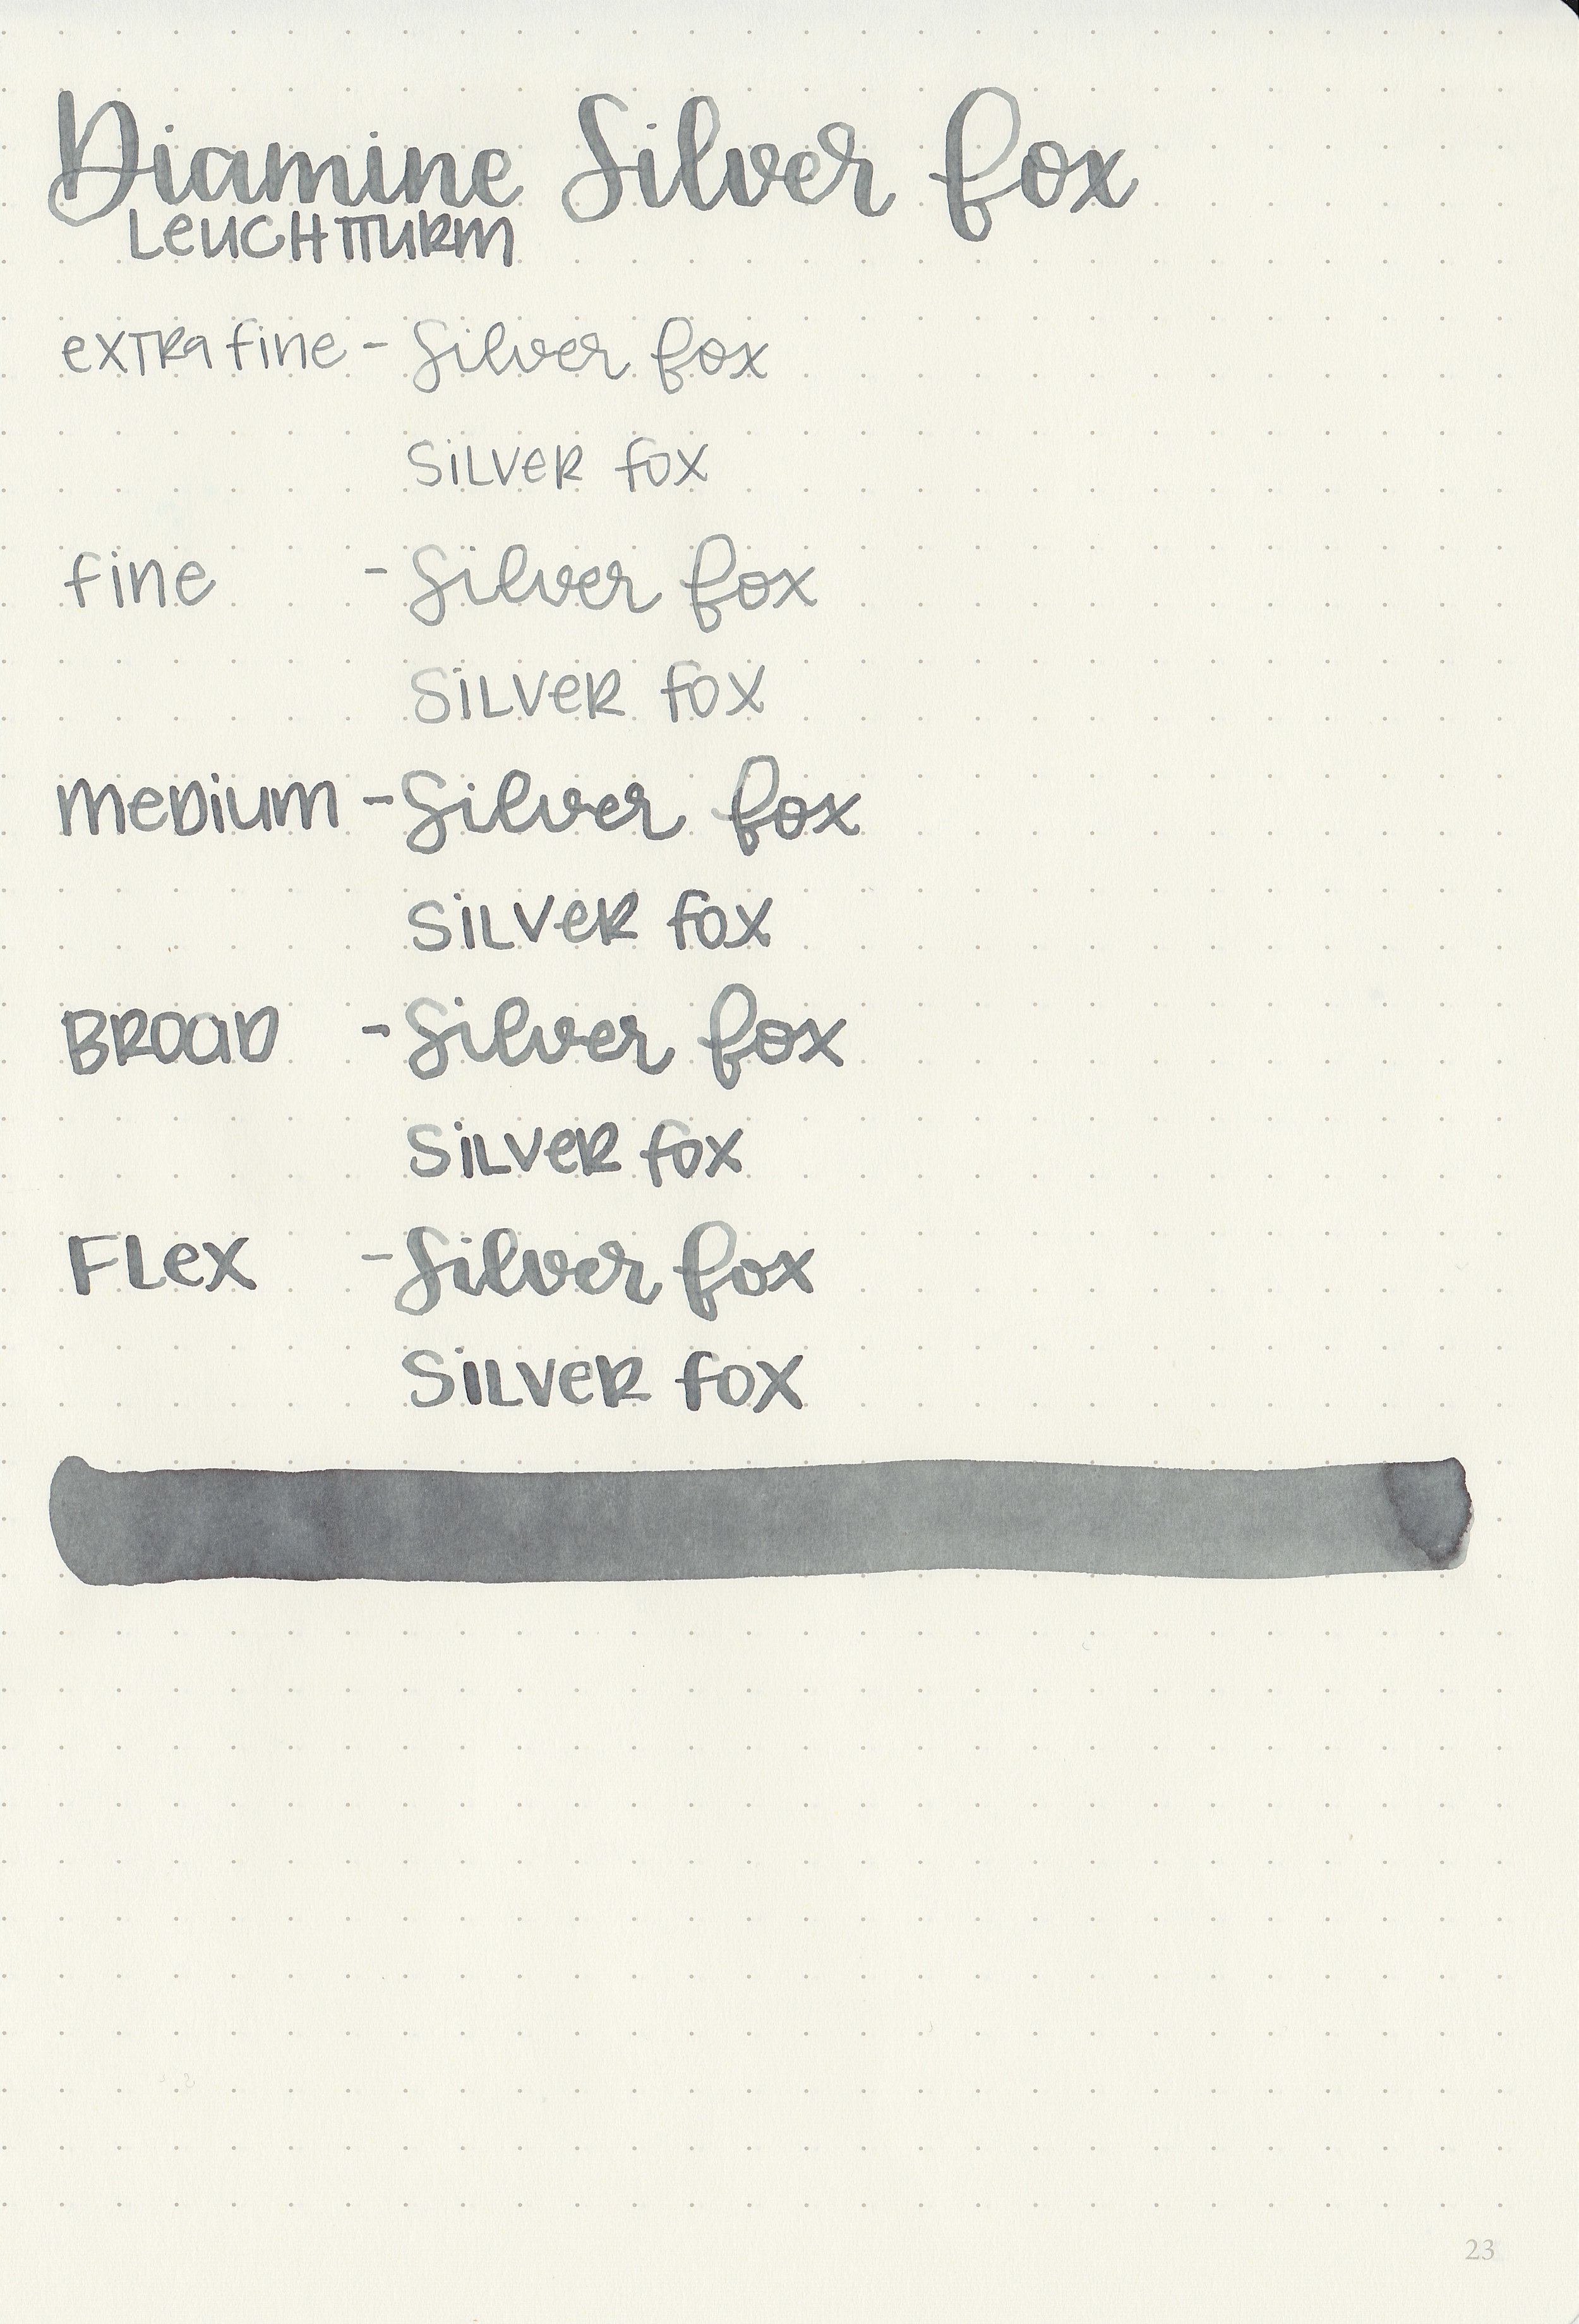 Diamine Silver Fox
LEUCHTTURM
exTRa fine - Silver fox
SiLVeR fox
fine - Silver fox
SiLVeR fox
meDium - Silver fox
SiLVeR fox
BROaD - Silver fox
SiLVeR fox
FLex - Silver fox
SiLVeR fox
23